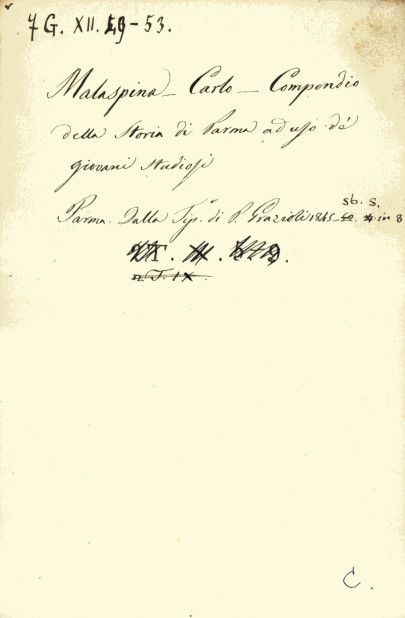 7 G. XII. 49-53.
Malaspina - Carlo - Compendio
della Storia di Parma ad uso de'
giovani studiosi
sb. s.
Parma. Dalla Tip. di P. Grazioli 1845 in 8
n T. IX.
C.